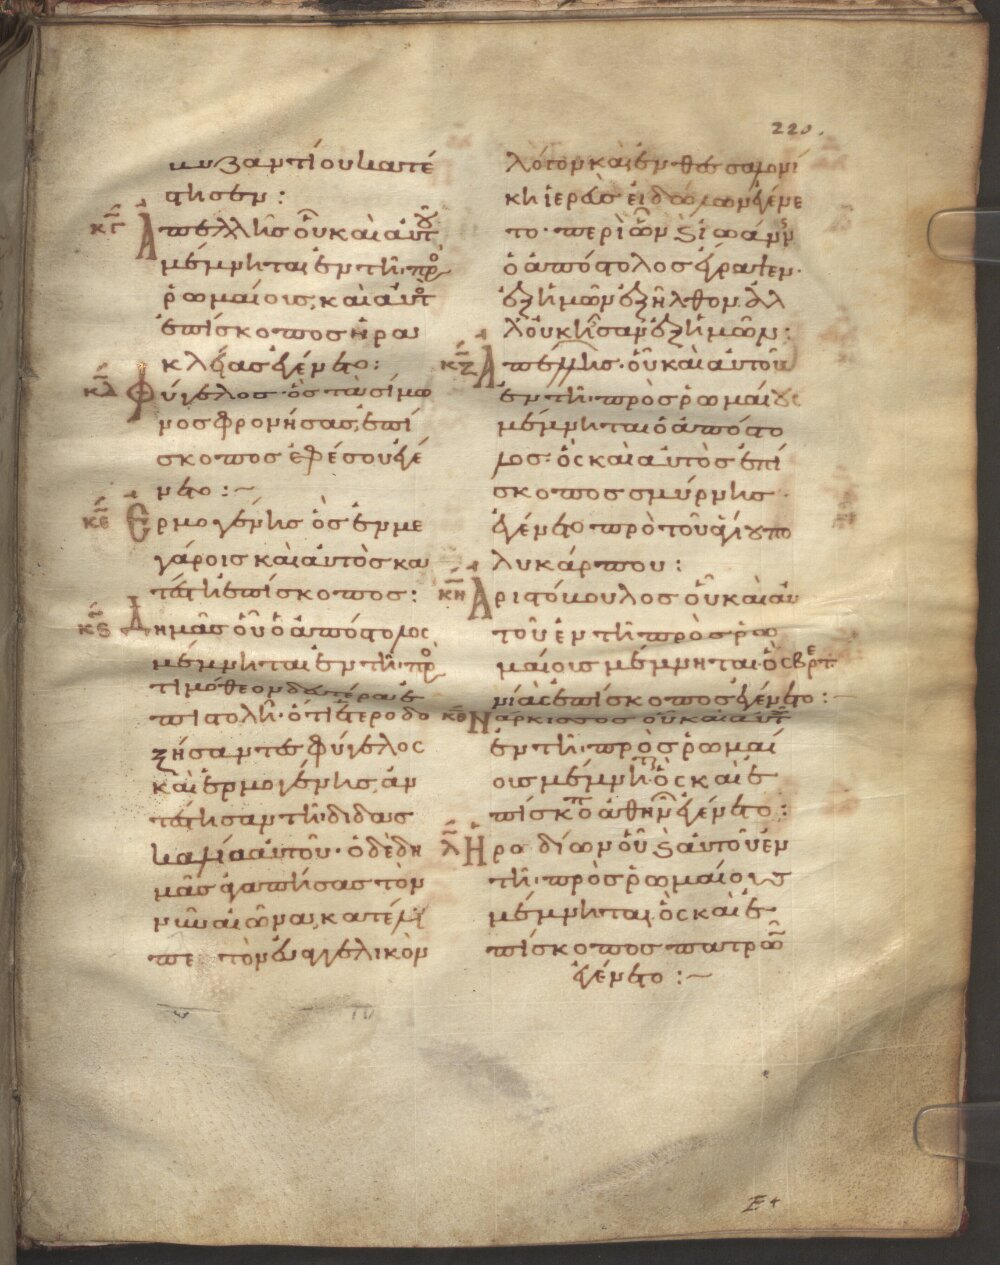 220.
ἐν βυζαντίου κατέ
στησεν :
κγ Ἀπελλῆς οὗ καὶ αὐτοῦ
μέμνηται ἐν τῇ πρὸ
ῥωμαίοις, καὶ αὐτὸ
ἐπίσκοπος ἡρα
κλείας ἐγένετο :
κδ Φύγελος ὃς τὰ σίμω
νος φρονήσας, ἐπί
σκοπος ἐφέσου ἐγέ
νετο : ~
κε Ἑρμογένης ὃς ἐν με
γάροις καὶ αὐτὸς κα
τέστη ἐπίσκοπος :
κϛ Δημᾶς οὗ ὁ ἀπόστολος
μέμνηται ἐν τῇ πρὸ
τιμόθεον δευτέρα ἐ
πιστολῇ· ὅτι ἑτεροδο
ξήσαντες φύγελος
καὶ ἑρμογένης, ἀν
τέστησαν τῇ διδασ
καλία αὐτοῦ· ὁ δὲ δη
μᾶς ἀγαπήσας τὸν
νῦν αἰῶνα, κατέλι
πε τὸν εὐαγγελικὸν
λόγον καὶ ἐν θεσσαλονί
κη ἱερεὺς εἰδώλων ἐγένε
το· περὶ ὧν ϗ ἰωάνν
ὁ ἀπόστολος ἔγραψεν·
ἐξ ἡμῶν ἐξῆλθον. ἀλ
λ' οὐκ ἦσαν ἐξ ἡμῶν :
κζ Ἀπελλῆς· οὗ καὶ αὐτοῦ
ἐν τῇ πρὸς ῥωμαίους
μέμνηται ὁ ἀπόστο
λος· ὃς καὶ αὐτὸς ἐπί
σκοπος σμύρνης
ἐγένετο πρὸ τοῦ ἁγίου πο
λυκάρπου :
κη Ἀριστόβουλος οὗ καὶ αὐ
τοῦ ἐν τῇ πρὸς ῥω
μαίοις μέμνηται· ὃς βρετ
νίας ἐπίσκοπος ἐγένετο : ~
κθ Νάρκισσος οὗ καὶ αὐτ
ἐν τῇ πρὸς ῥωμαί
οις μέμνηται ὃς καὶ ἐ
πίσκοπ ἀθηνῶν ἐγένετο :
λ Ἡροδίων οὗ ϗ αὐτοῦ ἐν
τῇ πρὸς ῥωμαίοις
μέμνηται, ὃς καὶ ἐ
πίσκοπος πατρῶν
ἐγένετο : ~
E4